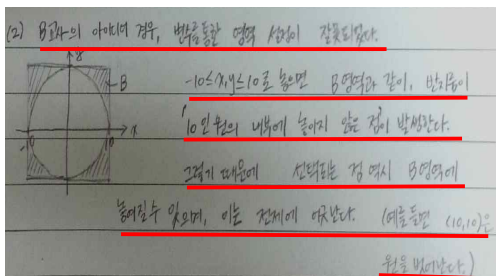 (2) B교사의 아이디어 경우, 변수를 통한 영역 설정이 잘못되었다.
y
B
-10≤x,y≤10로 놓으면 B영역과 같이, 반지름이
-10 10 x
10인 원의 내부에 놓이지 않은 점이 발생한다.
그렇기 때문에 선택되는 점 역시 B영역에
놓여질 수 있으며, 이는 전제에 어긋난다. (예를 들면 (10,10)은
원을 벗어난다.)